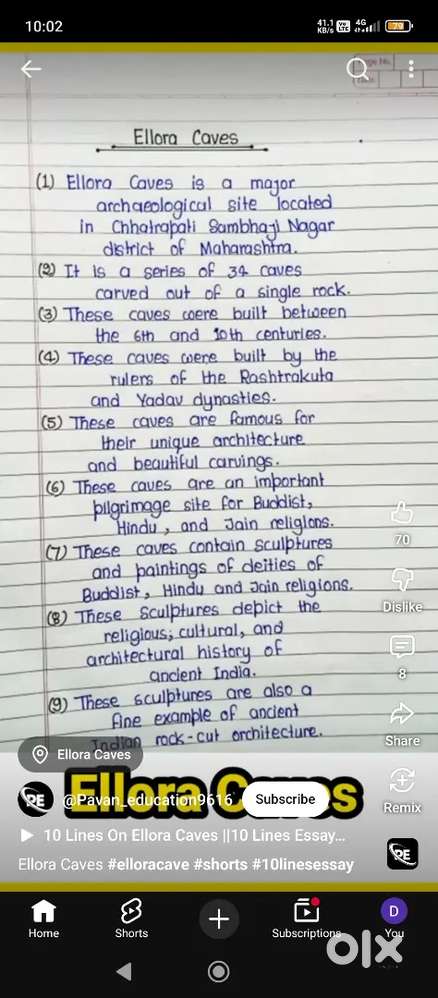 10:02
41.1 KB/s Vo LTE 4G 79
Ellora Caves
(1) Ellora Caves is a major
archaeological site located
in Chhatrapati Sambhaji Nagar
district of Maharashtra.
(2) It is a series of 34 caves
carved out of a single rock.
(3) These caves were built between
the 6th and 10th centuries.
(4) These caves were built by the
rulers of the Rashtrakuta
and Yadav dynasties.
(5) These caves are famous for
their unique architecture
and beautiful carvings.
(6) These caves are an important
pilgrimage site for Buddist,
Hindu, and Jain religions.
70
(7) These caves contain sculptures
and paintings of deities of
Buddist, Hindu and Jain religions.
Dislike
(8) These sculptures depict the
religious, cultural, and
architectural history of
ancient India.
8
(9) These sculptures are also a
fine example of ancient
Indian rock-cut architecture.
Share
Ellora Caves
Ellora Caves
@Pavan_education9616
Subscribe
Remix
10 Lines On Ellora Caves ||10 Lines Essay...
Ellora Caves #elloracave #shorts #10linesessay
Home
Shorts
Subscriptions
D
You
olx